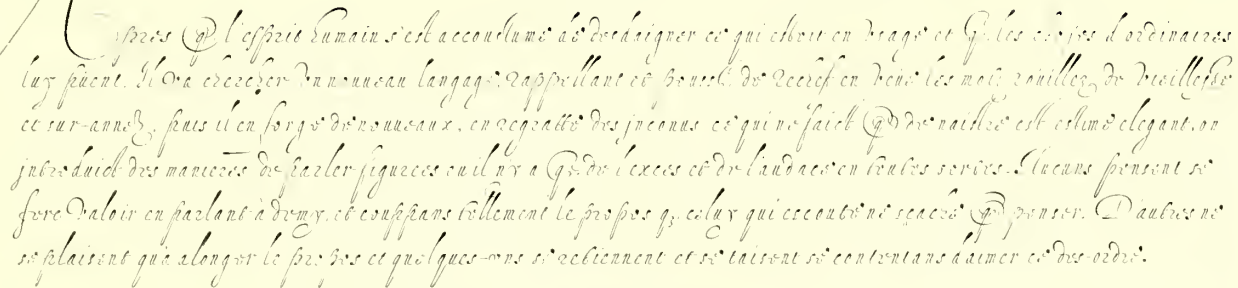 Apres q̃ l'esprit humain s'est accoustumé à desdaigner ce qui estoit en usage et q̃ les choses d'ordinaires
luy puent. Il va chercher un nouueau langage, rappellant et poussé de rechef en veüe les motz rouillez de vieillesse
et sur-annez, puis il en forge de nouueaux, en regratte des jnconus ce qui ne faict q̃ de naistre est estimé elegant, on
jntroduict des manieres de parler figurees ou il n'y a q̃ de l'exces et de l'audace en toutes sortes. Aucuns pensent se
fere valoir en parlant à demy, et couppans tellement le propos q̃ celuy qui escoute ne scache q̃ penser. D'autres ne
se plaisent qu'a alonger le propos et quelques-uns se retiennent et se taisent se contentans d'aimer ce des-ordre.